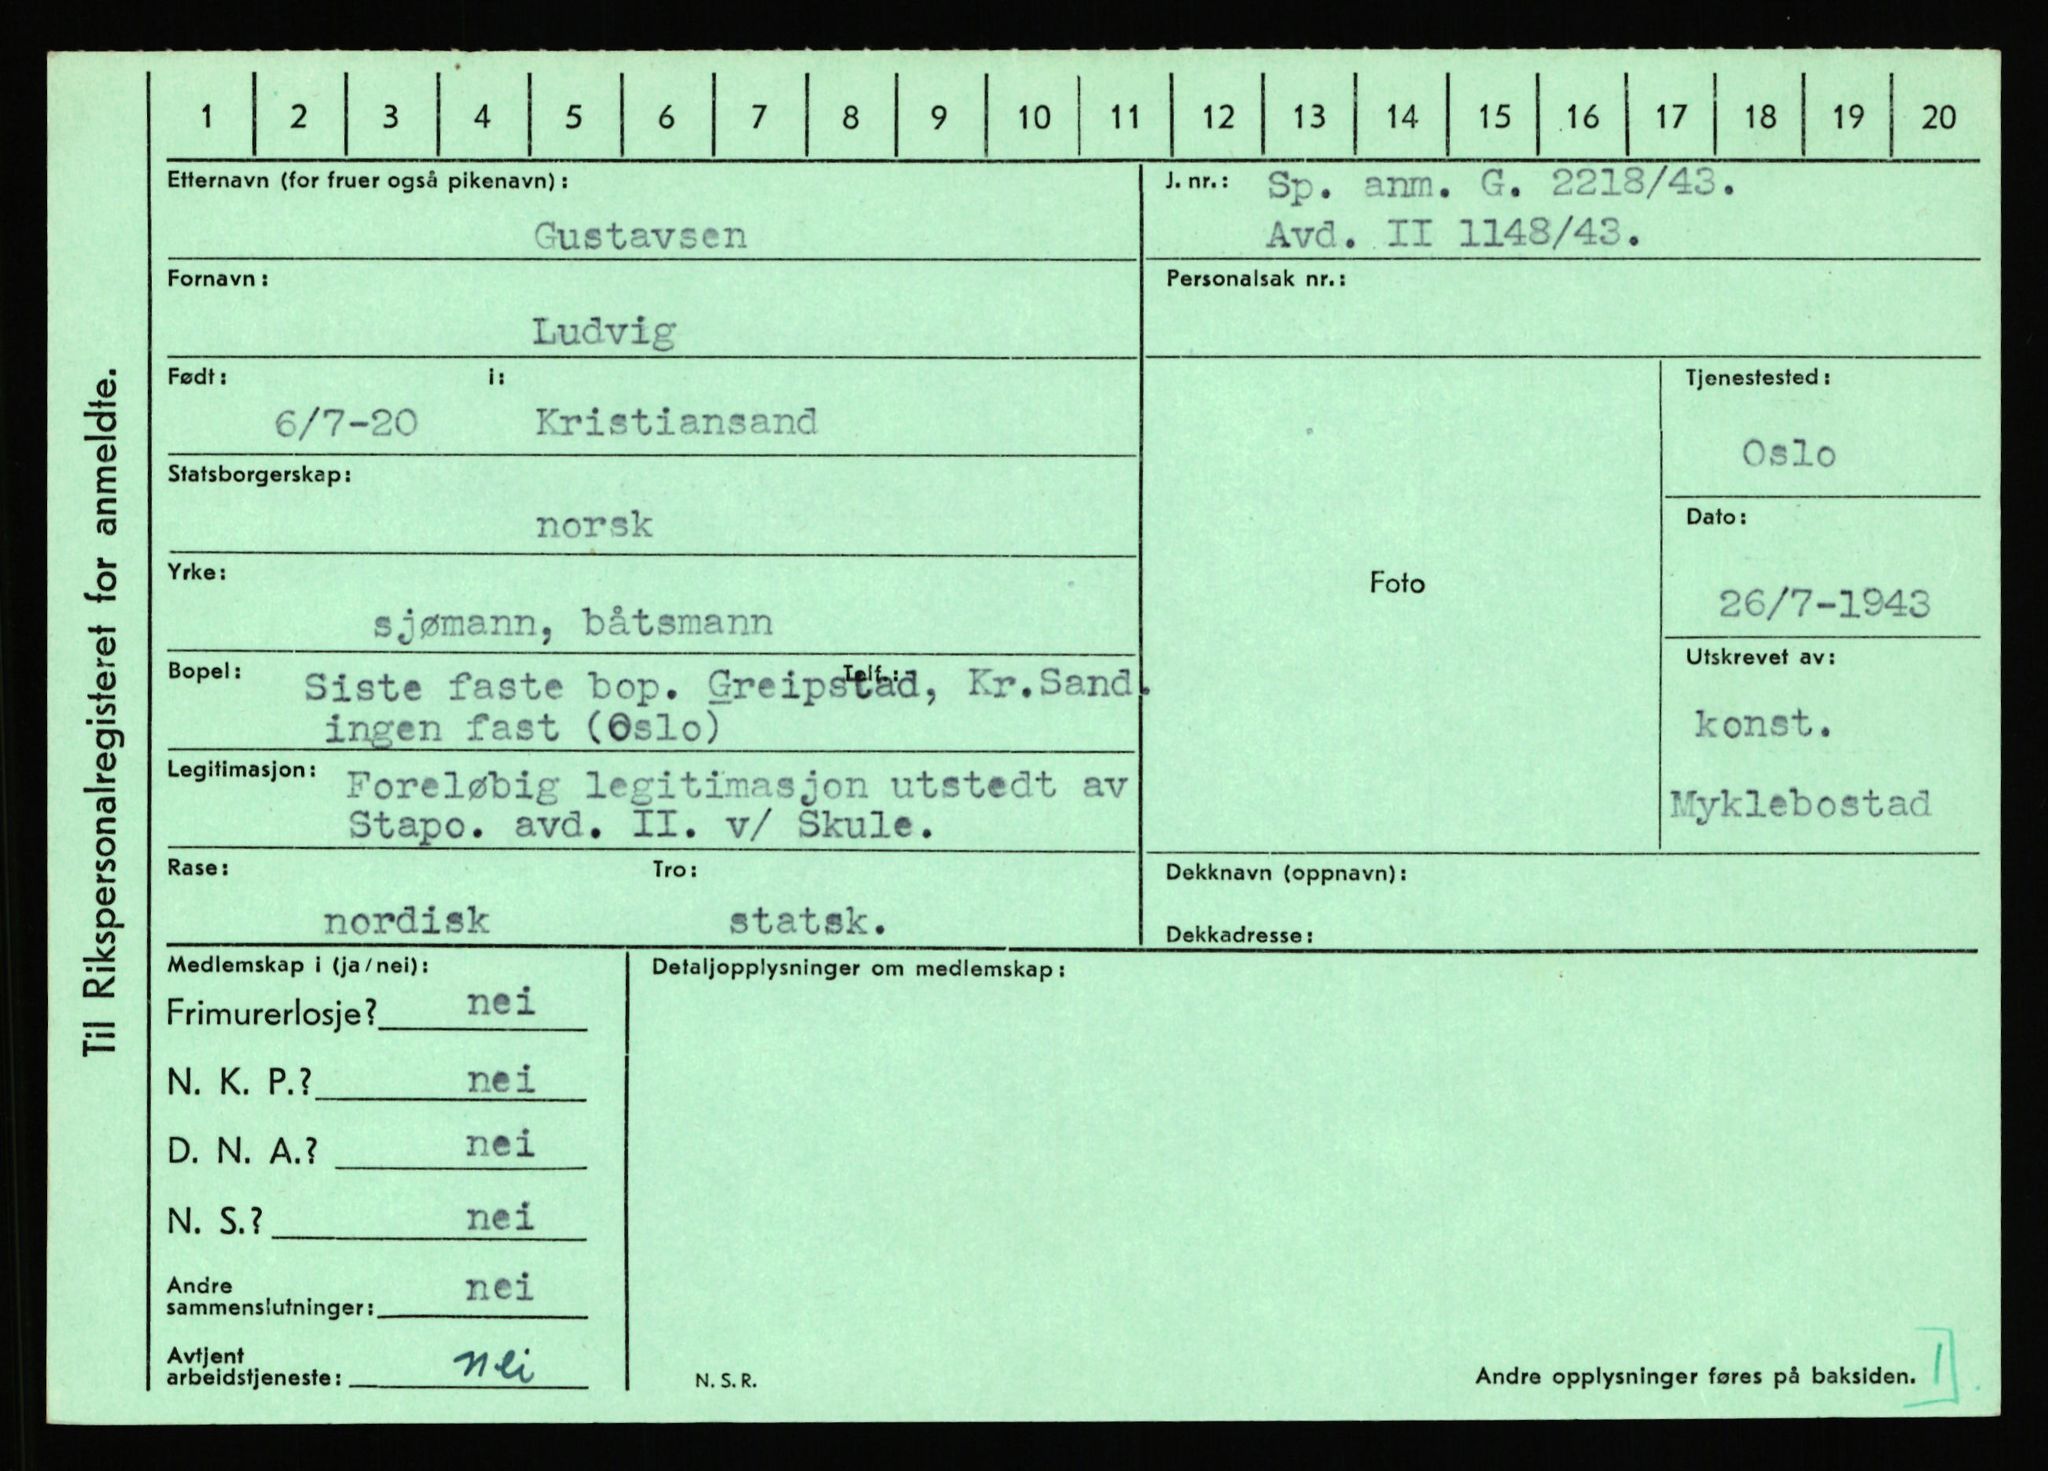 Til Rikspersonalregisteret for anmeldte.
1 2 3 4 5 6 7 8 9 10 11 12 13 14 15 16 17 18 19 20
Etternavn (for fruer også pikenavn):
Gustavsen
J. nr.: Sp. anm. G. 2218/43.
Avd. II 1148/43.
Fornavn:
Ludvig
Personalsak nr.:
Født: i:
6/7-20 Kristiansand
Statsborgerskap:
norsk
Yrke:
sjømann, båtsmann
Bopel: Telf.:
Siste faste bop. Greipstad, Kr.Sand.
ingen fast (Oslo)
Legitimasjon: Foreløbig legitimasjon utstedt av
Stapo. avd. II. v/ Skule.
Rase: Tro:
nordisk statsk.
Foto
Tjenestested:
Oslo
Dato:
26/7-1943
Utskrevet av:
konst.
Myklebostad
Dekknavn (oppnavn):
Dekkadresse:
Medlemskap i (ja/nei):
Frimurerlosje? nei
N. K. P.? nei
D. N. A.? nei
N. S.? nei
Andre
sammenslutninger: nei
Avtjent
arbeidstjeneste: nei
Detaljopplysninger om medlemskap:
N. S. R.
Andre opplysninger føres på baksiden.
1